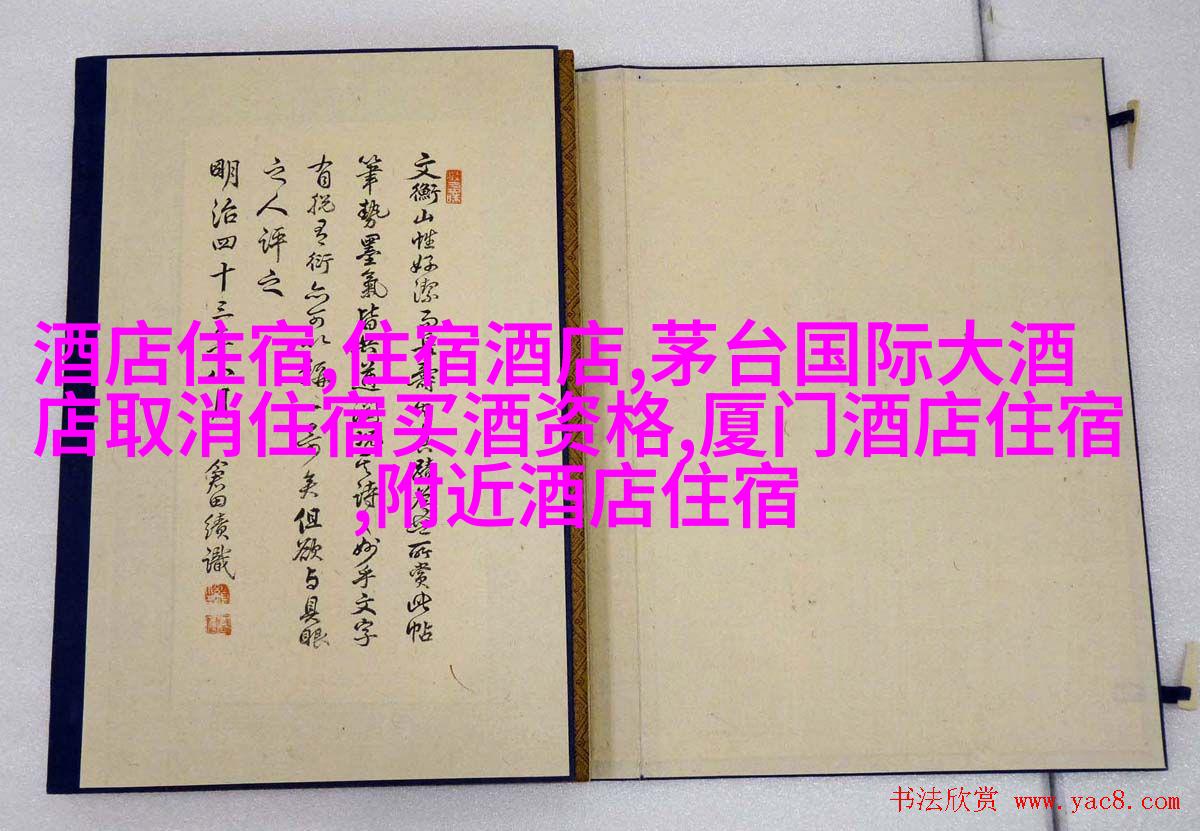 酒店住宿,住宿酒店,茅台国际大酒
店取消住宿买酒资格,厦门酒店住宿
,附近酒店住宿
文衡山性好潔而
所賞此帖
筆勢墨氣皆
詩
妙乎文字
有
衍亦可以稱
矣但欲与具眼
之人評之
明治四十三年八月
倉田績識
书法欣赏 www.yac8.com